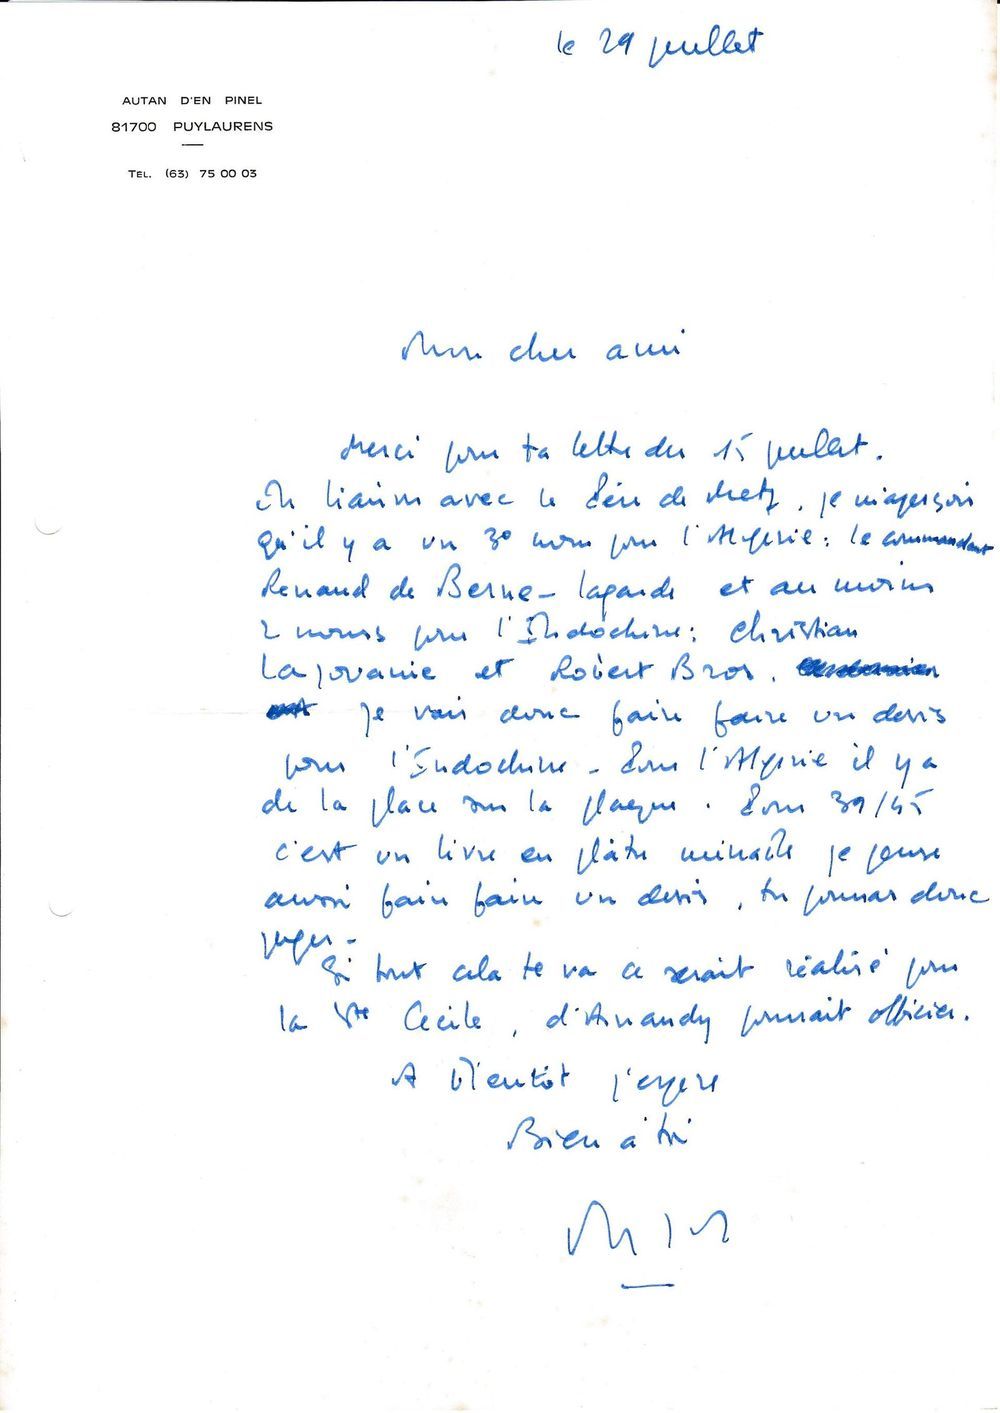 le 29 juillet
AUTAN D'EN PINEL
81700 PUYLAURENS
TEL. (63) 75 00 03
Mon cher ami
Merci pour ta lettre du 15 juillet.
En liaison avec le Père de Metz, je m'aperçois
qu'il y a un 3e nom pour l'Algérie : le commandant
Renaud de Berne-Lagarde et au moins
2 noms pour l'Indochine : Christian
Lajouanie et Robert Bros.
je vais donc faire faire un devis
pour l'Indochine - Pour l'Algérie il y a
de la place sur la plaque. Pour 39/45
c'est un livre en plâtre je pense
aussi faire faire un devis, tu pourras donc
juger -
Si tout cela te va ce serait réalisé pour
la Ste Cécile, d'Amandy pourrait officier.
A bientôt j'espère
Bien à toi